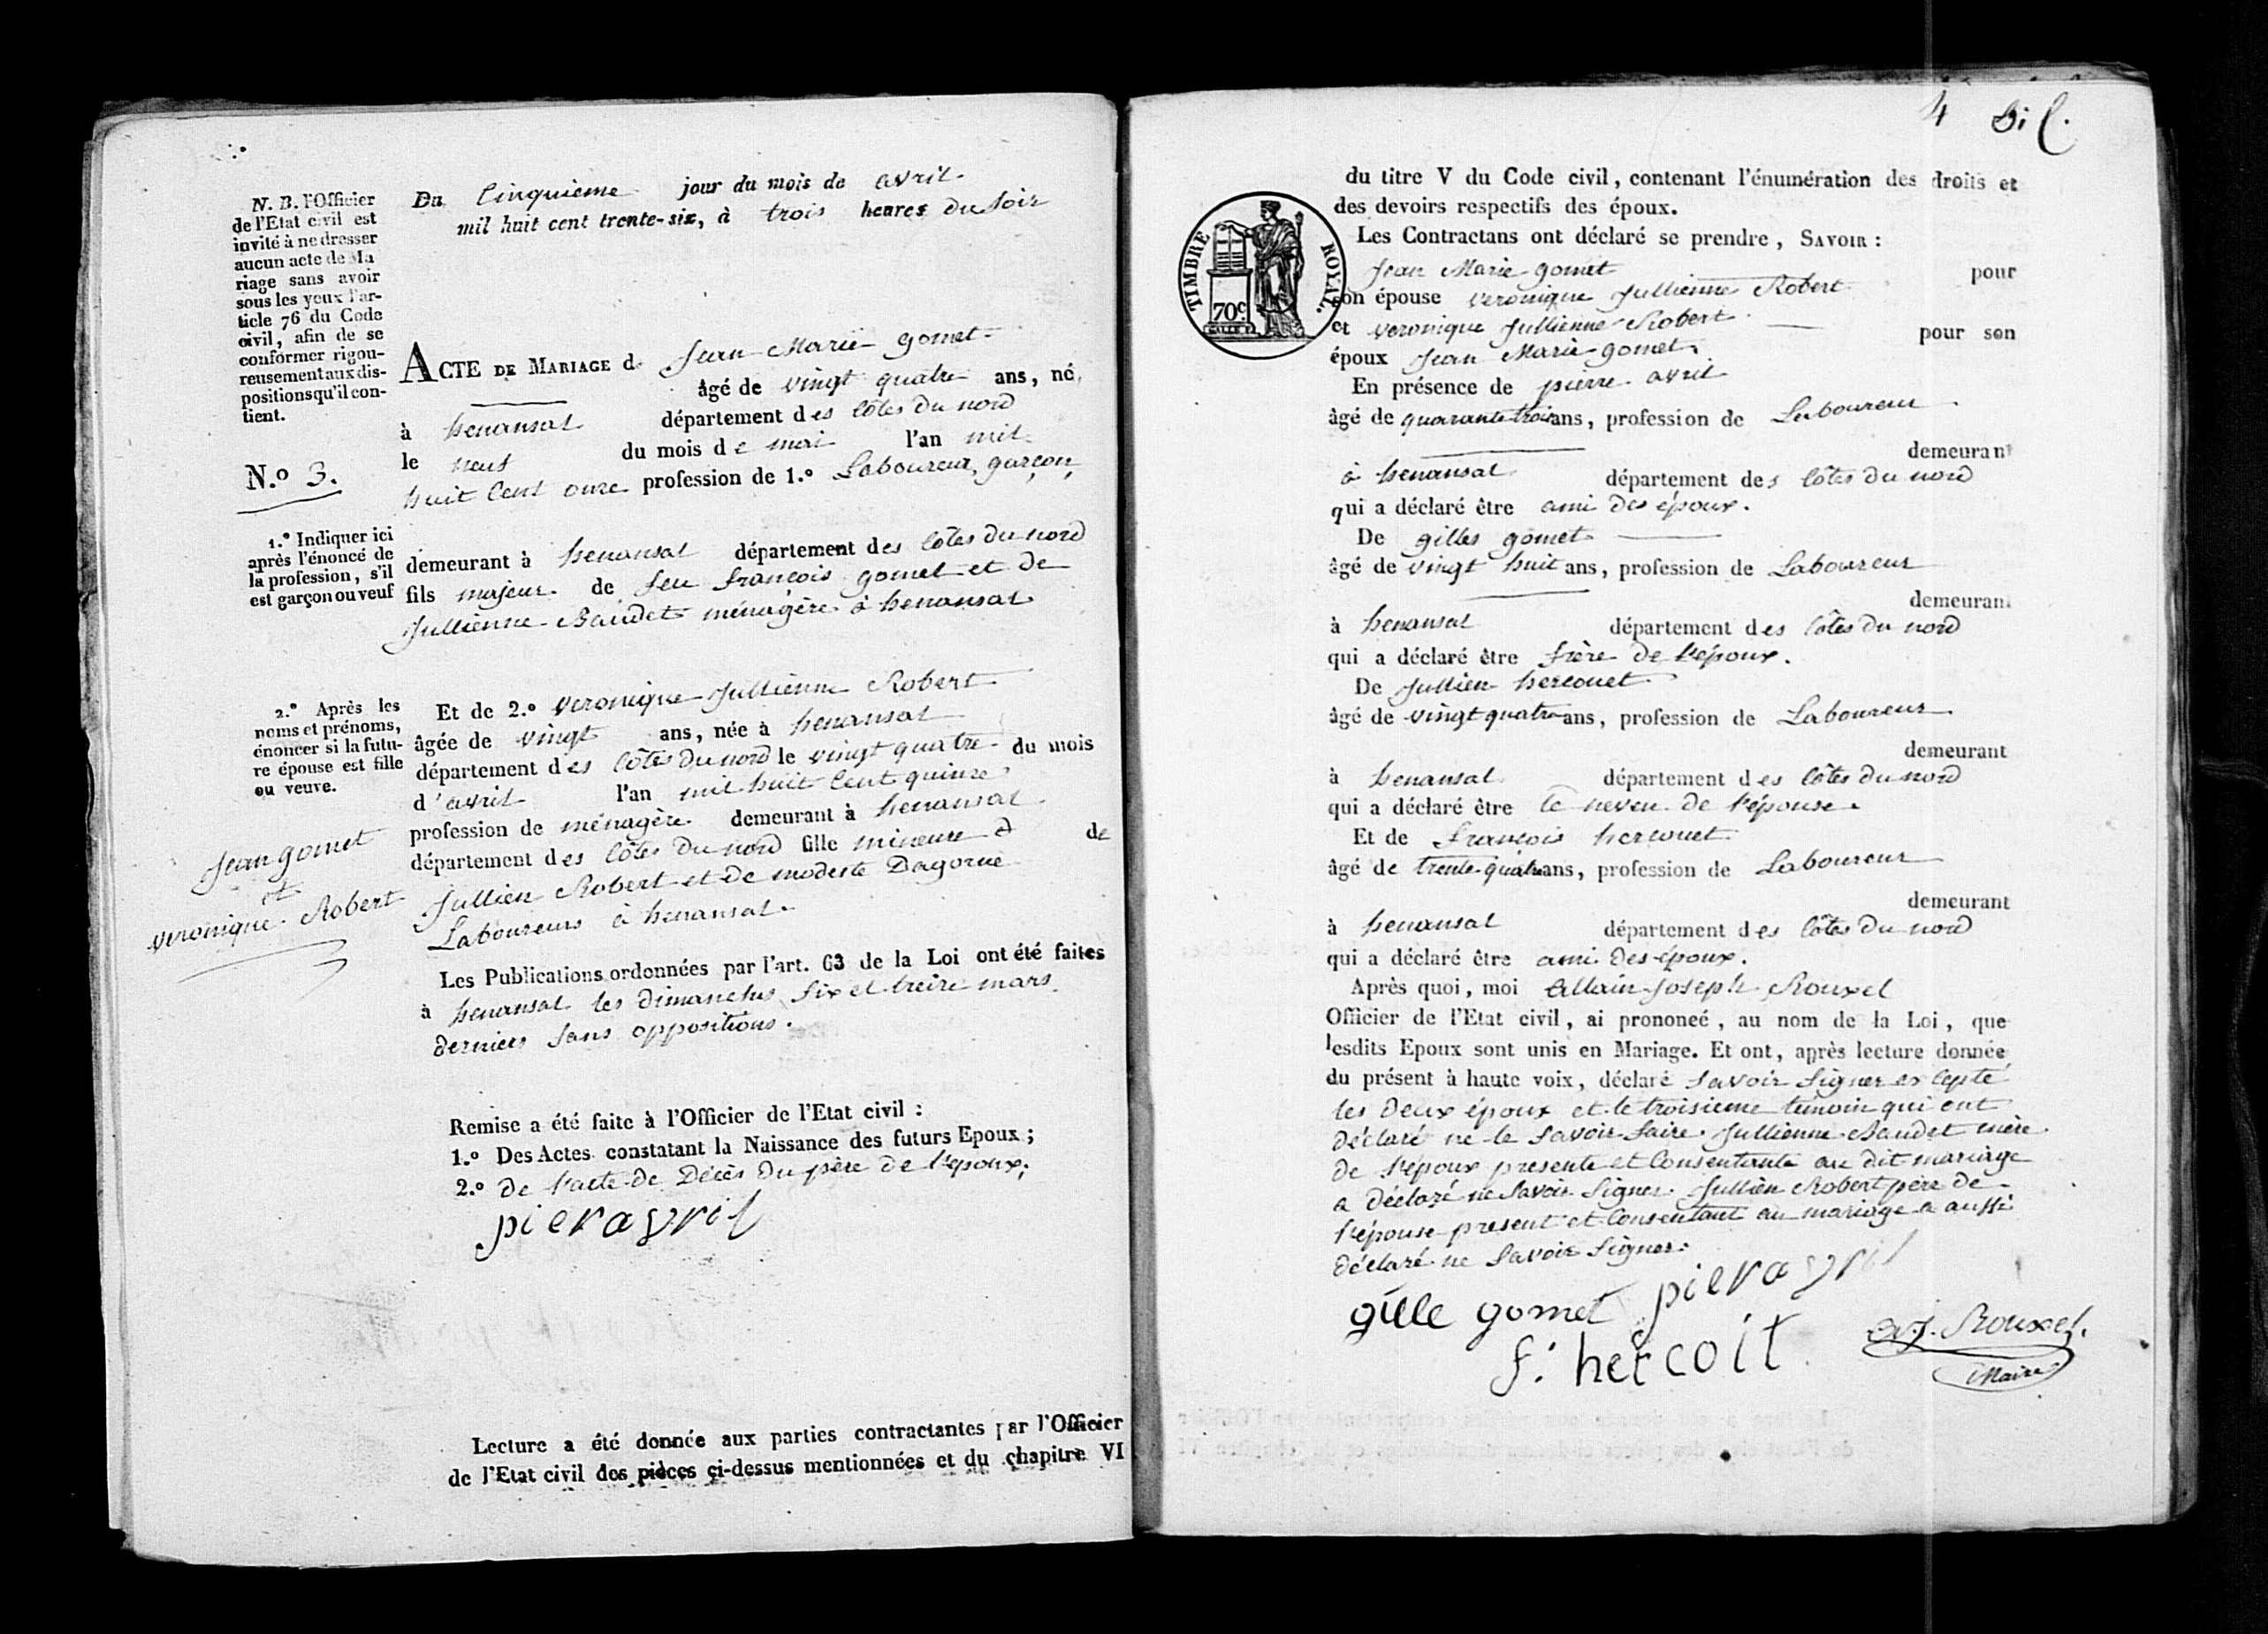 N. B. l'Officier
de l'Etat civil est
invité à ne dresser
aucun acte de Ma
riage sans avoir
sous les yeux l'ar-
ticle 76 du Code
civil, afin de se
conformer rigou-
reusement aux dis-
positions qu'il con-
tient.
N.o 3.
1.o Indiquer ici
après l'énoncé de
la profession, s'il
est garçon ou veuf
2.o Après les
noms et prénoms,
énoncer si la futu-
re épouse est fille
ou veuve.
Jean gomet
et
veronique Robert
Du Cinquième jour du mois de avril
mil huit cent trente-six, à trois heures du soir
ACTE DE MARIAGE de Jean Marie gomet
âgé de vingt quatre ans, né
à henansal département des Côtes du nord
le neuf du mois de mai l'an mil
huit Cent onze profession de 1.o Laboureur, garçon,
demeurant à henansal département des Côtes du nord
fils majeur de feu françois gomet et de
Jullienne Baudet ménagère à henansal
Et de 2.o veronique Jullienne Robert
âgée de vingt ans, née à henansal
département des Côtes du nord le vingt quatre du mois
d'avril l'an mil huit Cent quinze
profession de ménagère demeurant à henansal
département des Côtes du nord fille mineure de
Jullien Robert et de modeste Dagorne
Laboureurs à henansal.
Les Publications ordonnées par l'art. 63 de la Loi ont été faites
à henansal les dimanches six et treize mars
derniers sans oppositions.
Remise a été faite à l'Officier de l'Etat civil :
1.o Des Actes constatant la Naissance des futurs Epoux ;
2.o de l'acte de Décès du père de l'époux ;
pieravril
Lecture a été donnée aux parties contractantes par l'Officier
de l'Etat civil des pièces ci-dessus mentionnées et du chapitre VI
4
TIMBRE ROYAL.
70c.
du titre V du Code civil, contenant l'énumération des droits et
des devoirs respectifs des époux.
Les Contractans ont déclaré se prendre, SAVOIR :
Jean Marie gomet pour
son épouse veronique Jullienne Robert
et veronique Jullienne Robert pour son
époux Jean Marie gomet.
En présence de pierre avril
âgé de quarante trois ans, profession de Laboureur
demeurant
à henansal département des Côtes du nord
qui a déclaré être ami des époux.
De gilles gomet
âgé de vingt huit ans, profession de Laboureur
demeurant
à henansal département des Côtes du nord
qui a déclaré être frère de l'époux.
De Jullien hercouet
âgé de vingt quatre ans, profession de Laboureur
demeurant
à henansal département des Côtes du nord
qui a déclaré être le neveu de l'épouse.
Et de françois hercouet
âgé de trente quatre ans, profession de Laboureur
demeurant
à henansal département des Côtes du nord
qui a déclaré être ami des époux.
Après quoi, moi Allain Joseph Rouxel
Officier de l'Etat civil, ai prononcé, au nom de la Loi, que
lesdits Epoux sont unis en Mariage. Et ont, après lecture donnée
du présent à haute voix, déclaré savoir signer excepté
les deux époux et le troisieme temoin qui ont
déclaré ne le savoir faire. Jullienne Baudet mère
de l'époux presente et Consentante au dit mariage
a déclaré ne savoir signer. Jullien Robert père de
l'épouse present et Consentant au mariage a aussi
déclaré ne savoir signer.
gille gomet pieravril
f. hercoit
a.j. Rouxel.
Maire